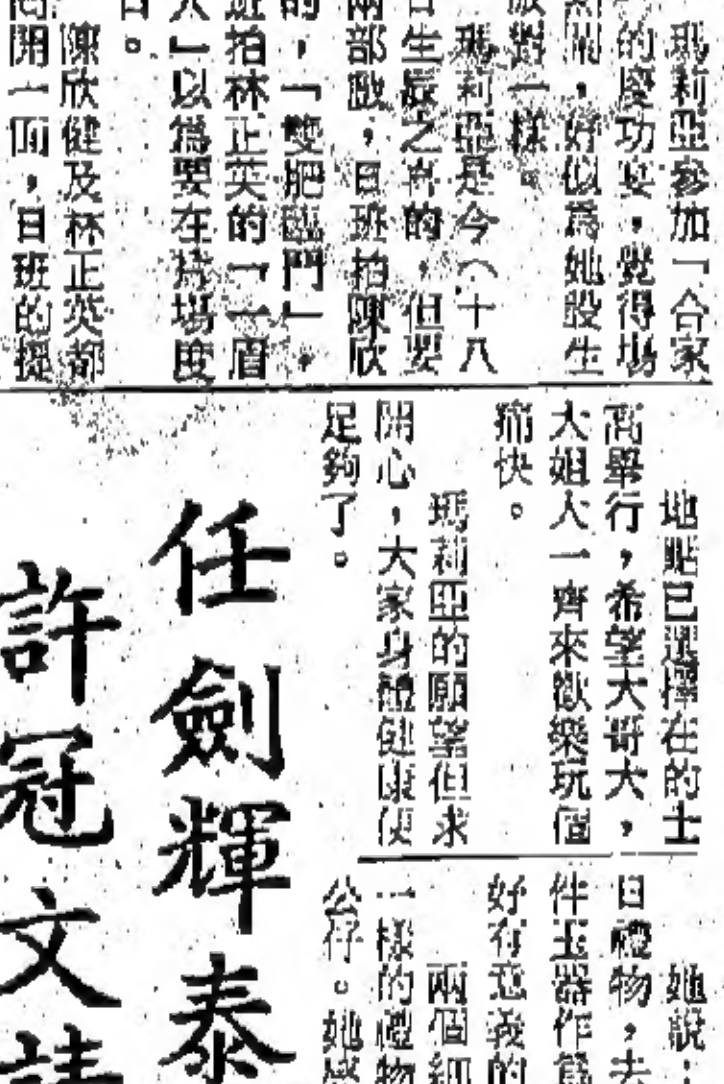 瑪莉亞參加「合家
的慶功宴，覺得場
開，好似爲她設生
對一樣。
瑪莉亞是今（十八
日生最之喜的，但要
兩部戲，日班拍陳欣
的，「雙肥臨門」，
班拍林正英的「一眉
人」以爲要在片場度
日。
陳欣健及林正英都
開一面，日班的提
地點已選擇在的士
高舉行，希望大哥大，
大姐大一齊來歡樂玩個
痛快。
瑪莉亞的願望但求
開心，大家身體健康便
足夠了。
她說：
日禮物，去
件玉器作爲
好有意義的
兩個細
一樣的禮物
公仔。她感
任劍輝泰
許冠文請